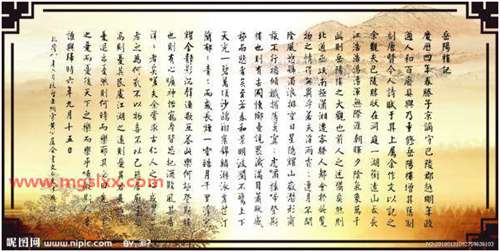 岳陽樓記
慶曆四年春滕子京謫守巴陵郡越明年政
通人和百廢具興乃重修岳陽樓增其舊制
刻唐賢今人詩賦于其上屬余作文以記之
余觀夫巴陵勝狀在洞庭一湖銜遠山吞長
江浩浩湯湯橫無際涯朝暉夕陰氣象萬千
此則岳陽樓之大觀也前人之述備矣然則
北通巫峽南極瀟湘遷客騷人多會於此覽
物之情得無異乎若夫霪雨霏霏連月不開
陰風怒號濁浪排空日星隱耀山岳潛形商
旅不行檣傾楫摧薄暮冥冥虎嘯猿啼登斯
樓也則有去國懷鄉憂讒畏譏滿目蕭然感
極而悲者矣至若春和景明波瀾不驚上下
天光一碧萬頃沙鷗翔集錦鱗游泳岸芷汀
蘭郁郁青青而或長煙一空皓月千里浮光
耀金靜影沉璧漁歌互答此樂何極登斯樓
也則有心曠神怡寵辱皆忘把酒臨風其喜
洋洋者矣嗟夫余嘗求古仁人之心或異二
者之為何哉不以物喜不以己悲居廟堂之
高則憂其民處江湖之遠則憂其君是進亦
憂退亦憂然則何時而樂耶其必曰先天下
之憂而憂後天下之樂而樂乎噫微斯人吾
誰與歸時六年九月十五日
www.mgslxx.com
昵图网
www.nipic.com